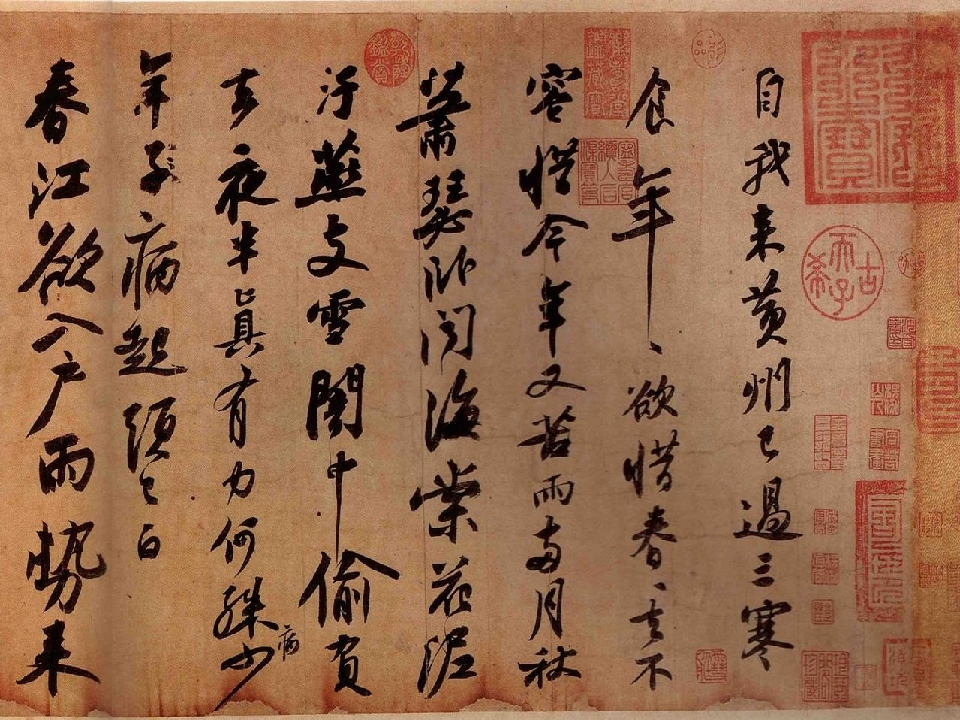 自我来黄州已過三寒
食年、欲惜春、去不
容惜今年又苦雨兩月秋
蕭瑟卧聞海棠花泥
汙燕支雪闇中偷負
去夜半真有力何殊少
病
年子病起頭已白
春江欲入戶雨勢来
古希天子